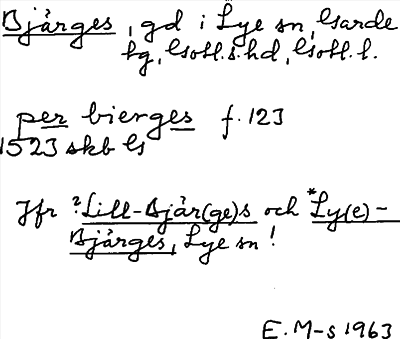 Bjärges, gd i Lye sn, Garde
tg, Gotl.s.hd, Gotl. l.
per bierges f. 123
1523 skb G
Jfr ?Lill-Bjär(ge)s och *Ly(e)-
Bjärges, Lye sn!
E. M-s 1963